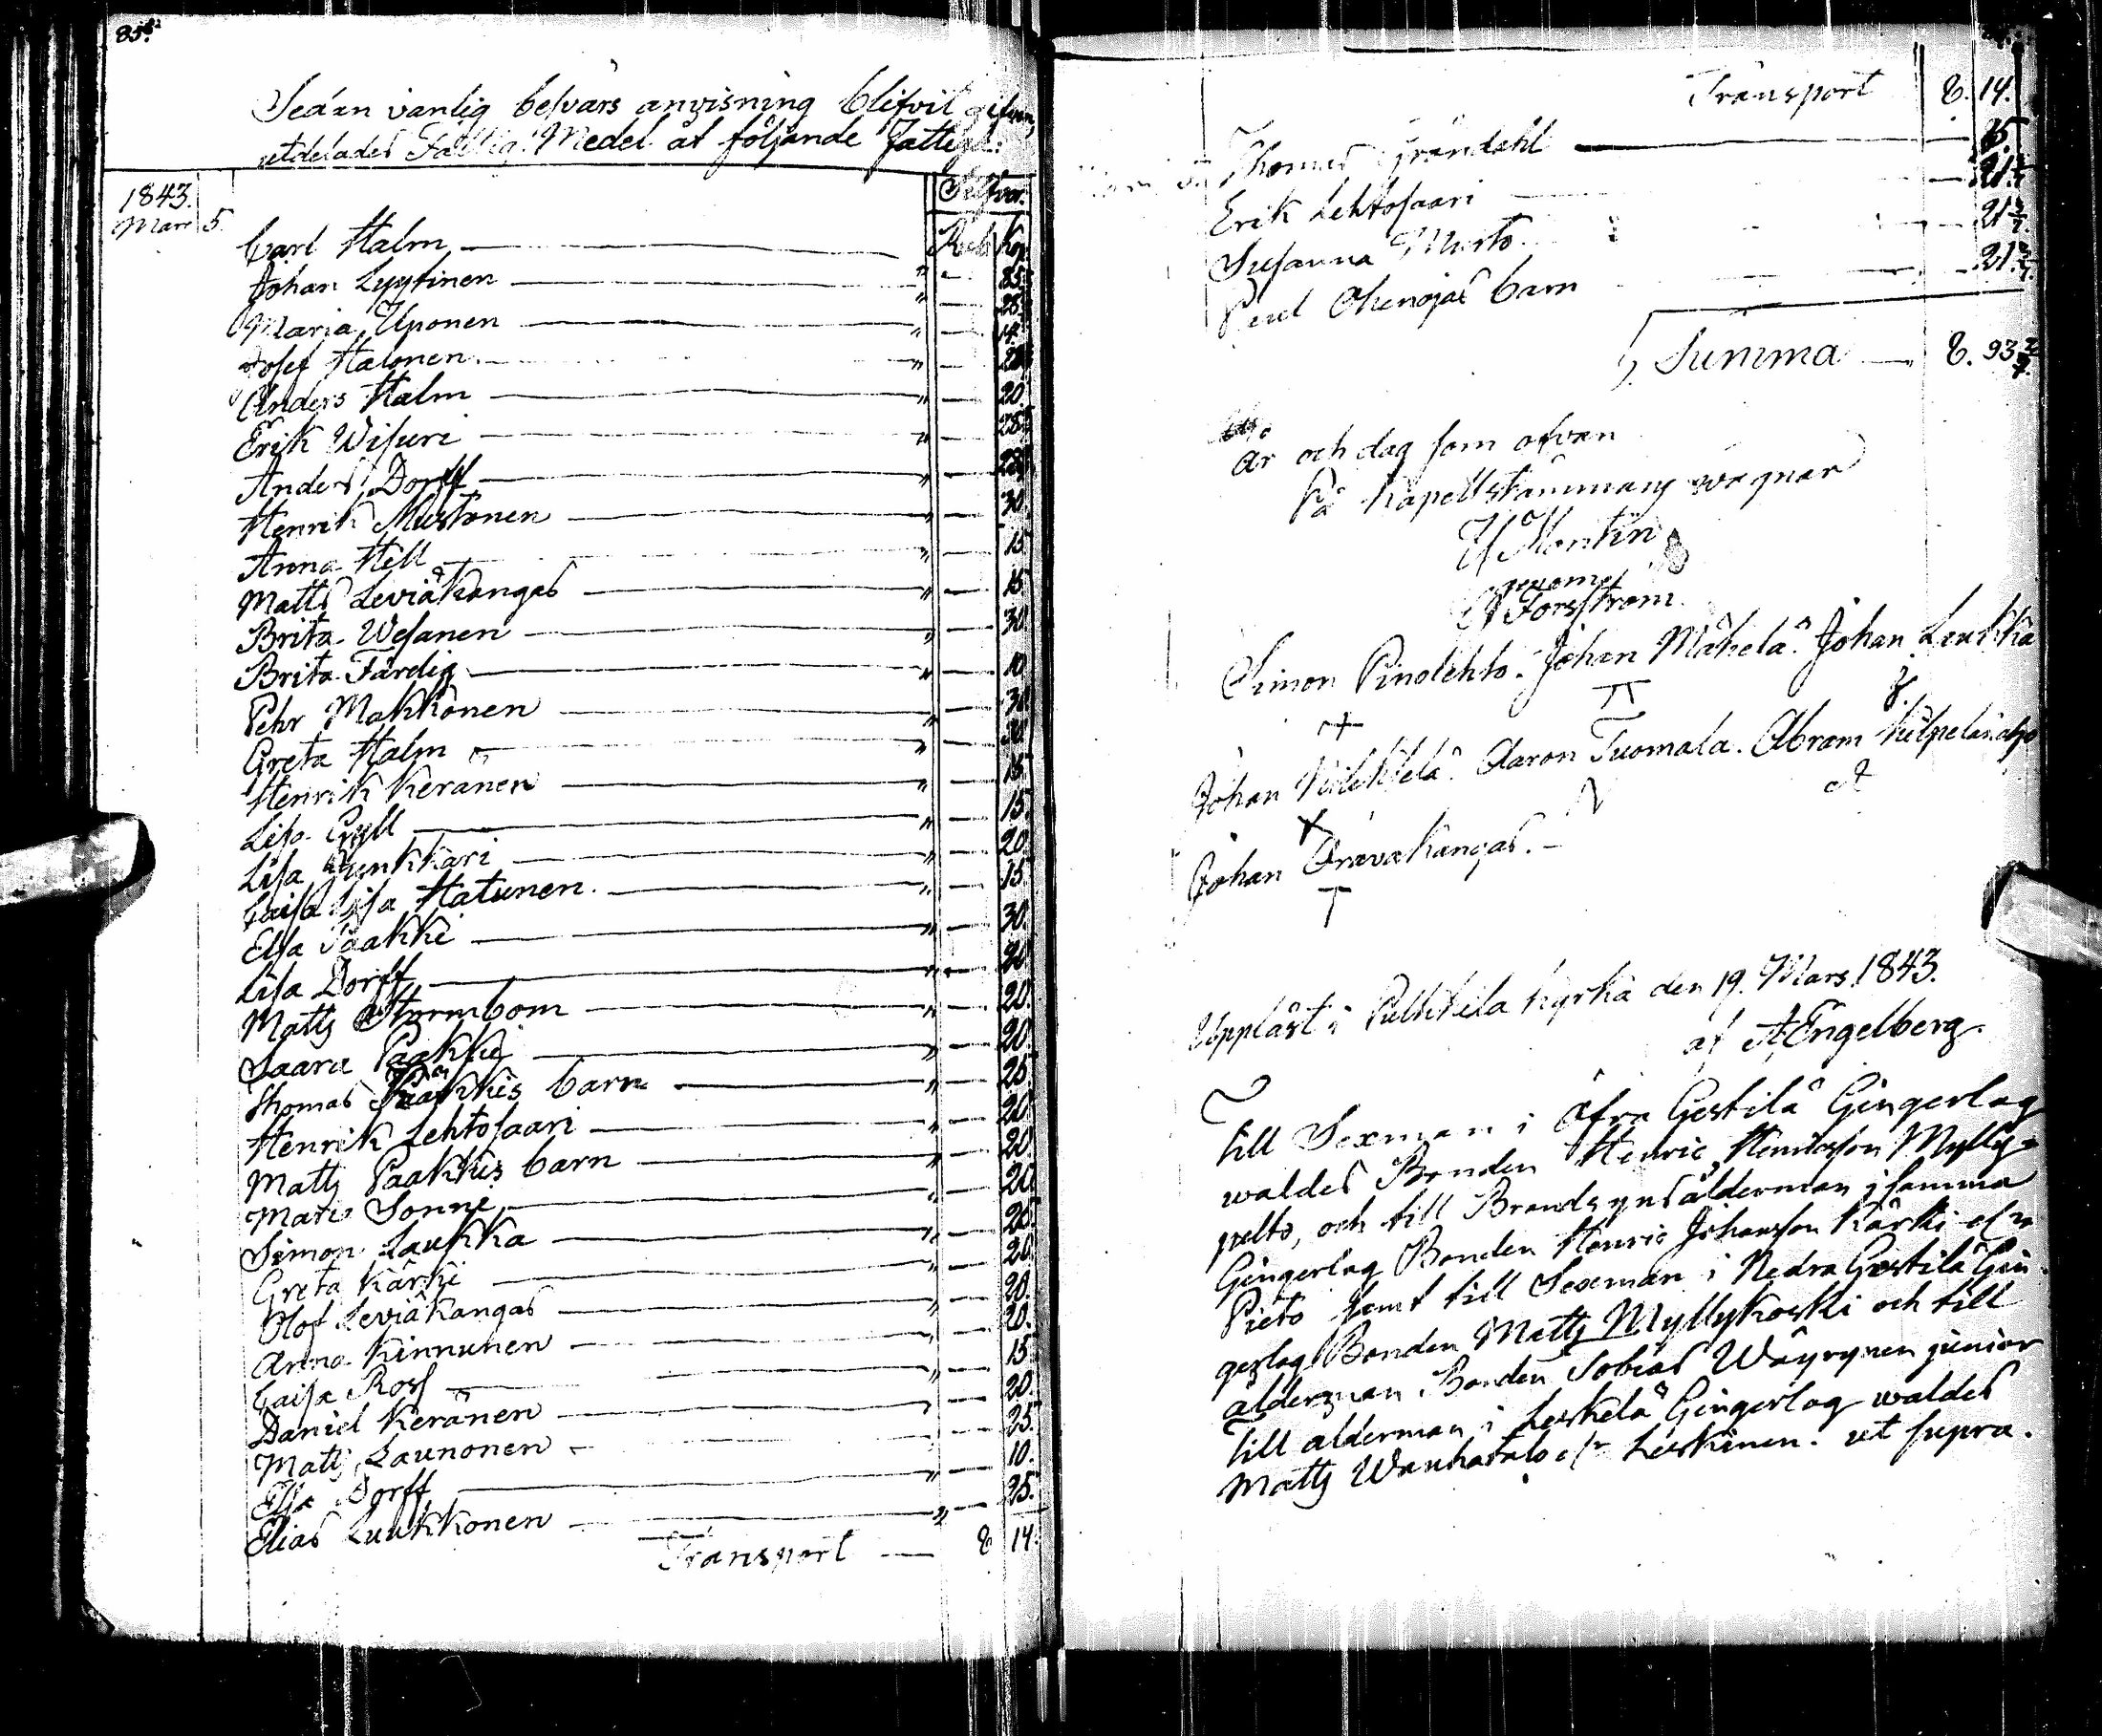 85.
Sedan vanlig besvärs anvisning blifvit gifven,
utdelades Fattig Medel åt följande Fattiga:
1843.
Mars 5.
Silfver.
Rub. Kop.
Carl Halm — " — 85.
Johan Lyytinen — " — 28.
Maria Uponen — " — 14.
Josef Halonen — " — 28.
Anders Halm — " — 20.
Erik Wisuri — " — 28.
Anders Dorff — " — 28.
Henrik Mustonen — " — 30.
Anna Hell — " — 15.
Matts Leviäkangas — " — 15.
Brita Wesanen — " — 30.
Brita Färdig — " — 10.
Pehr Makkonen — " — 30.
Greta Halm — " — 30.
Henrik Keränen — " — 15.
Lisa Gyll — " — 15.
Lisa Junkkari — " — 20.
Caisa Lisa Hatunen — " — 15.
Elsa Paakki — " — 30.
Lisa Dorff — " — 20.
Matts Stormbom — " — 20.
Saara Paakki — " — 20.
Thomas Paakkis barn — " — 25.
Henrik Lehtosaari — " — 20.
Matts Paakkis barn — " — 20.
Maria Sonni — " — 20.
Simon Laukka — " — 20.
Greta Kärki — " — 20.
Olof Leviäkangas — " — 20.
Anna Kinnunen — " — 20.
Caisa Ross — " — 15.
Daniel Keränen — " — 20.
Matts Launonen — " — 25.
Elsa Dorff — " — 10.
Elias Luukkonen — " — 25.
Transport — 8. 14.
Transport 8. 14.
Thomas Grandahl — 15.
Erik Lehtosaari — 21 3/7
Susanna Murto — 21 3/7
Paul Ahenojas barn — 21 3/7.
Summa — 8. 93 2/7.
År och dag som ofvan
På Kapellstämmans vägnar
genom
Forsström.
Simon Pinolehto. Johan Mäkelä. Johan Laukka
Johan Aaron Tuomala. Abram Kilpelänaho
Johan Oravakangas. —
Uppläst i Pulkkila kyrka den 19. Mars. 1843.
af A. Engelberg.
Till Sexman i Öfra Gestilä Gingerlag
waldes Bonden Henric Henricsson Mylly=
pelto, och till Brandsyns ålderman i samma
Gingerlag Bonden Henric Johansson Kärki el:r
Pieto samt till Sexman i Nedra Gestilä Gin
gerlag Bonden Matts Myllykoski och till
ålderman Bonden Tobias Wäyrynen junior
Till ålderman i Leskelä Gingerlag waldes
Matts Wanhatalo el:r Leskinen. ut supra.